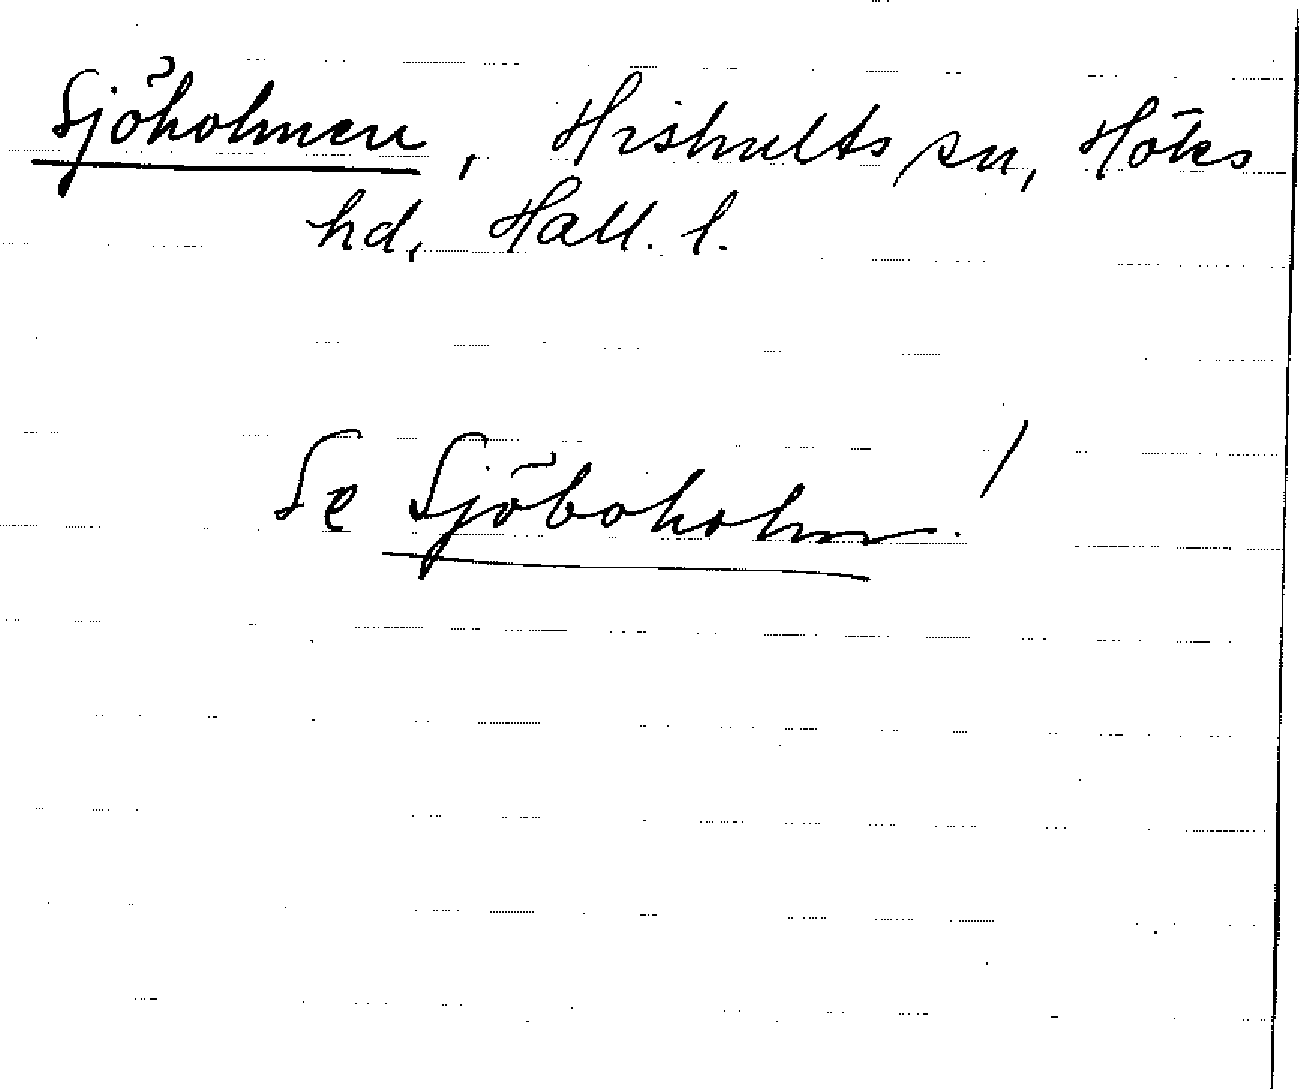 Sjöholmen, Hishults sn, Höks
hd, Hall. l.
Se Sjöboholm!